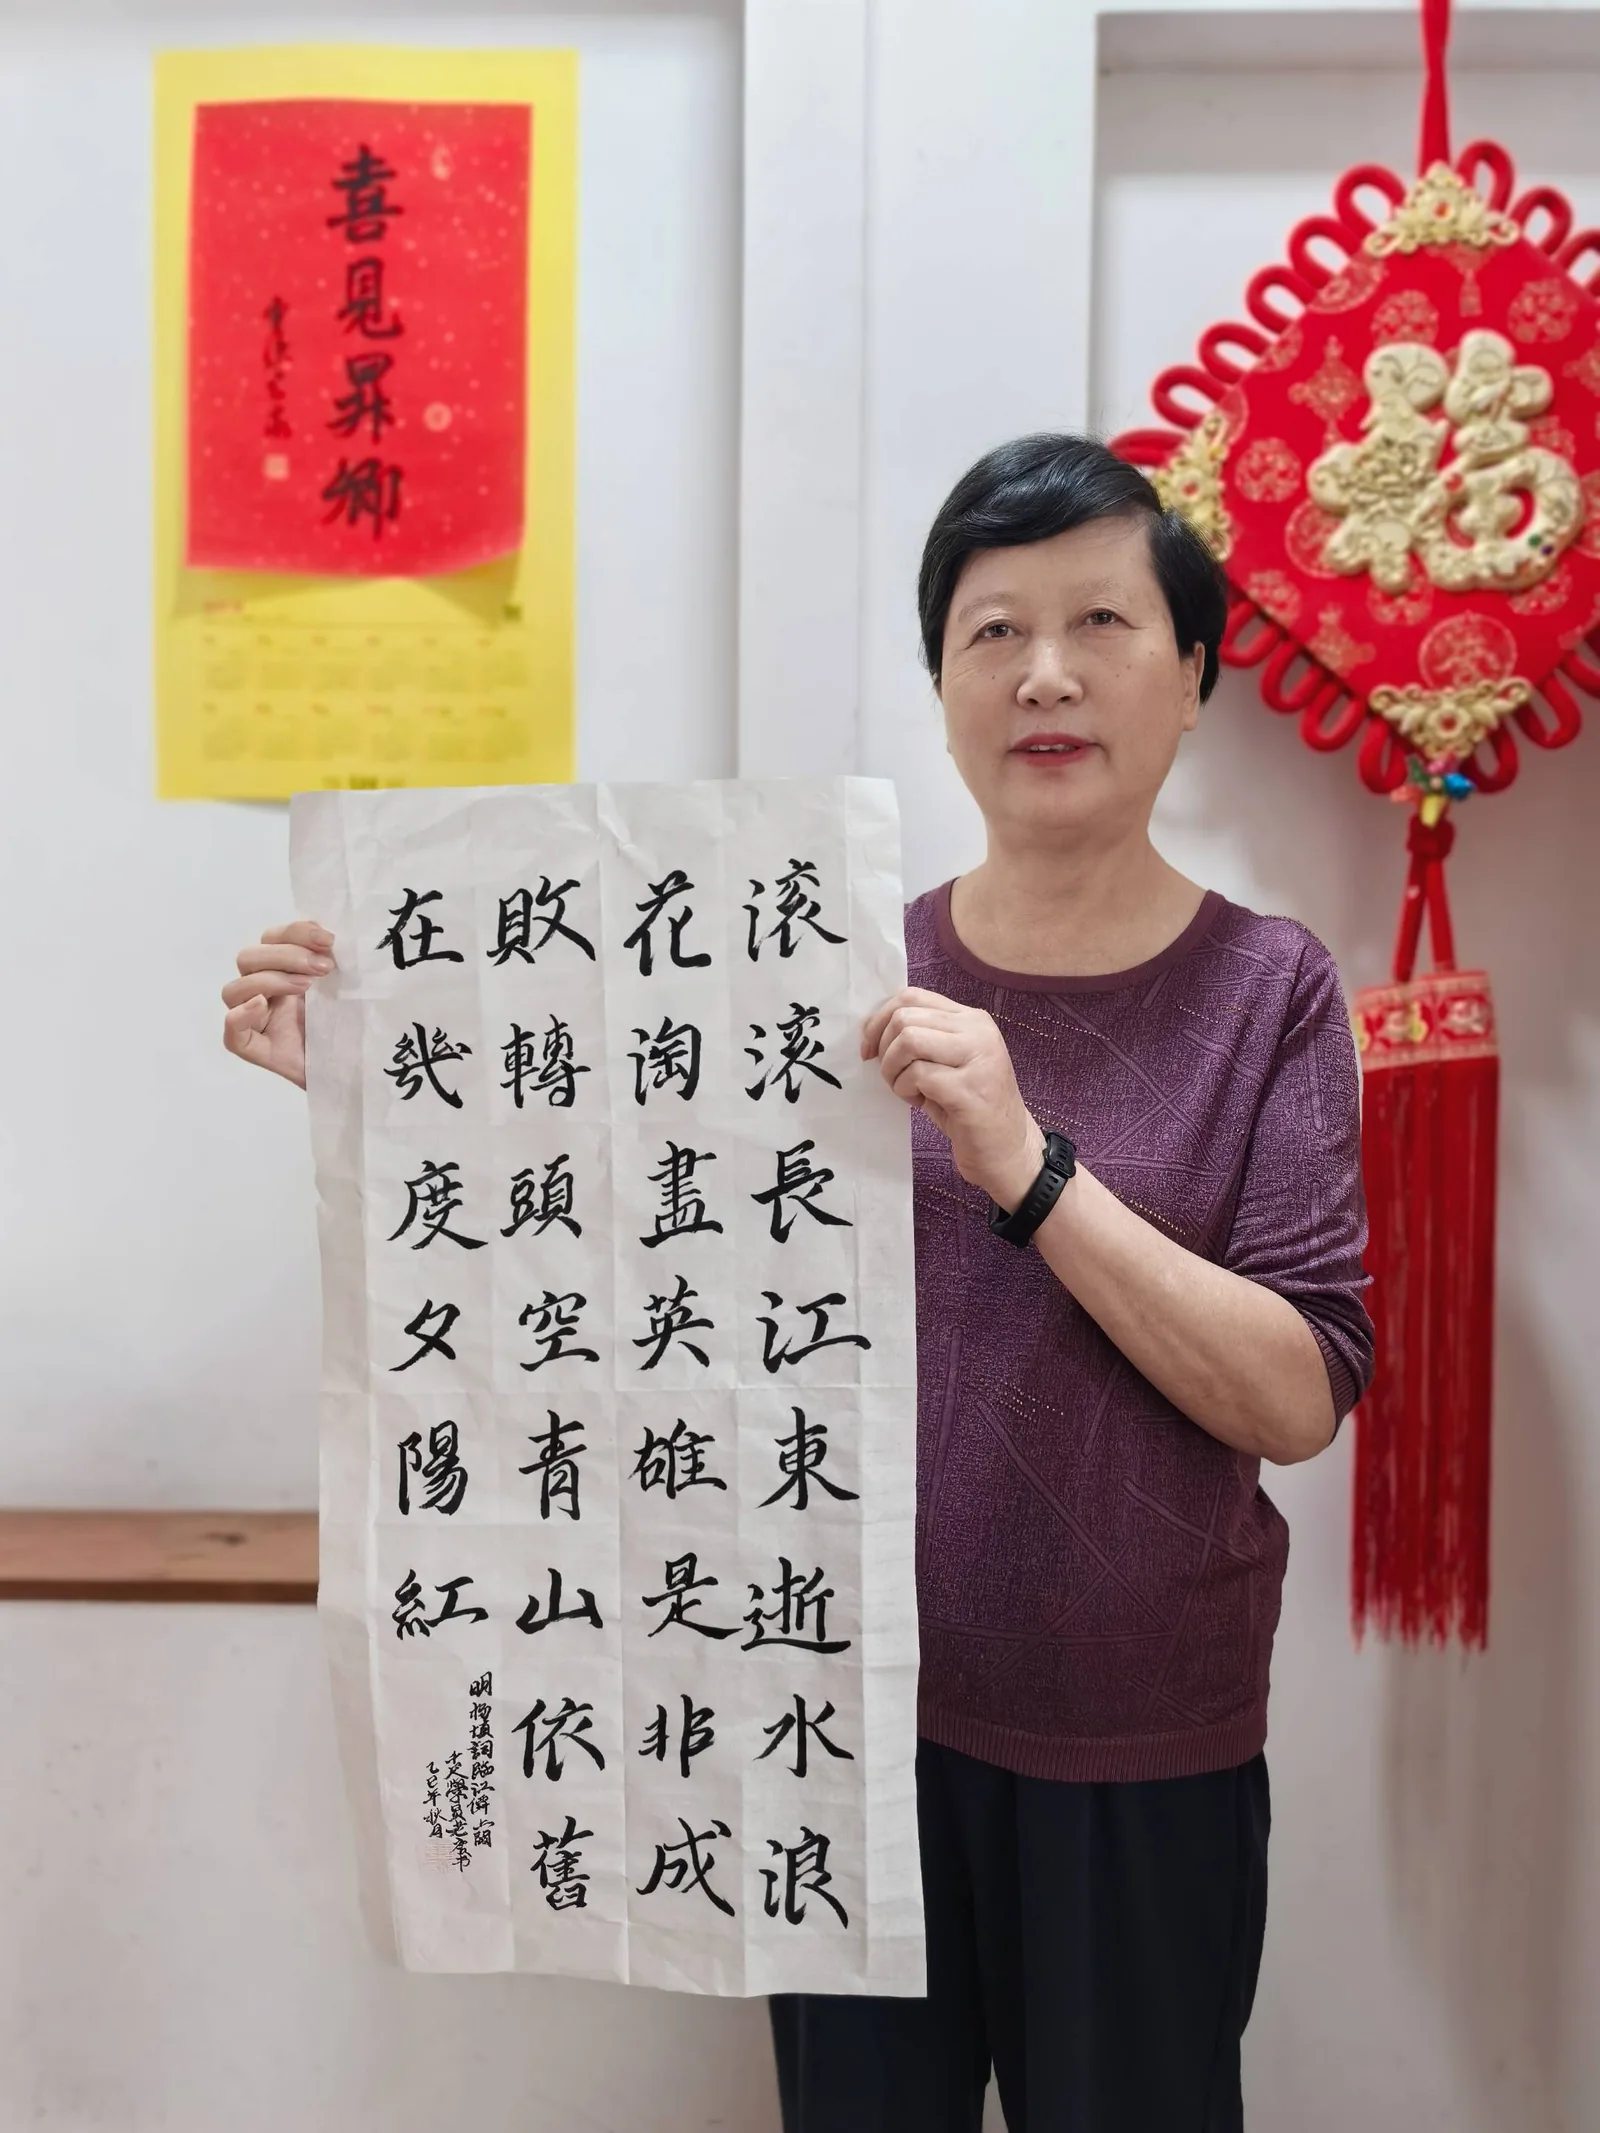 喜見昇卿
福
滚滚長江東逝水浪
花淘盡英雄是非成
敗轉頭空青山依舊
在幾度夕陽紅
明杨慎詞臨江僊上闋
乙巳年秋月